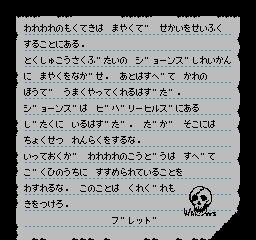 われわれのもくてきは まやくで せかいをせいふく
することにある。
とくしゅこうさくぶたいの ジョーンズしれいかん
に まやくをながせ。 あとはすべて かれの
ほうで うまくやってくれるはずだ。
ジョーンズは ビバリーヒルズにある
じたくに いるはずだ。 だが そこには
ちょくせつ れんらくをするな。
いっておくが われわれのこうどうは すべて
ごくひのうちに すすめられていることを
わすれるな。 このことは くれぐれも
きをつけろ。
ブレット